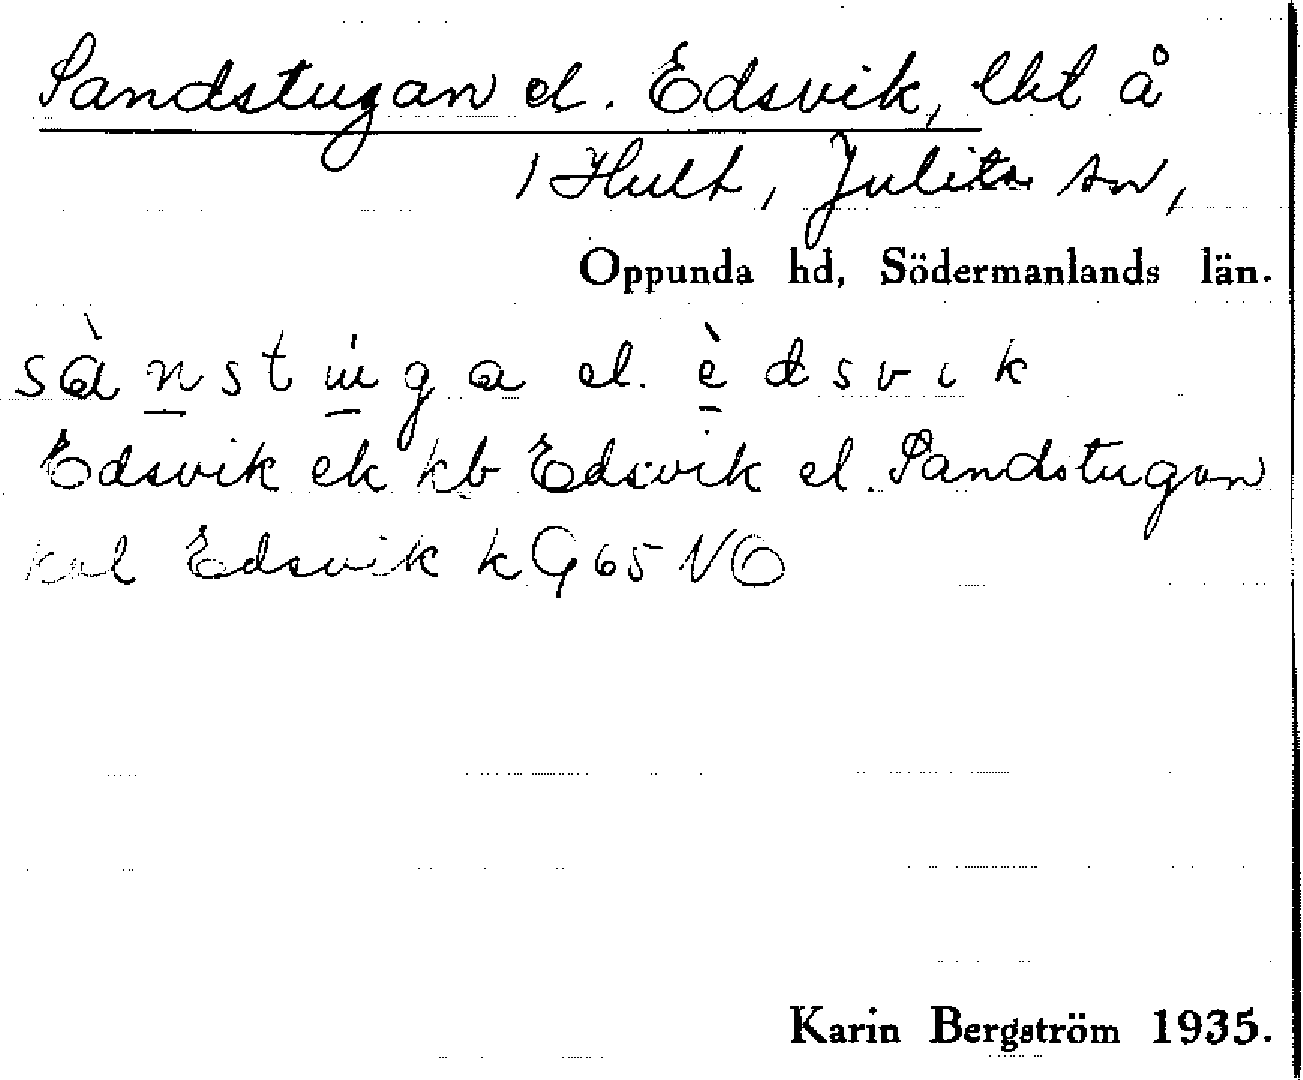 Sandstugan el. Edsvik, lht å
1 Hult, Julita sn,
Oppunda hd, Södermanlands län.
sànstu̇ga el. èdsvik
Edsvik ek kb Edsvik el. Sandstugan
kal Edsvik kG65NO
Karin Bergström 1935.